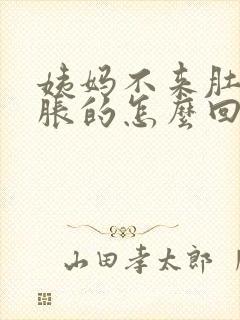 姨妈不来肚
胀的怎麼回
山田孝太郎